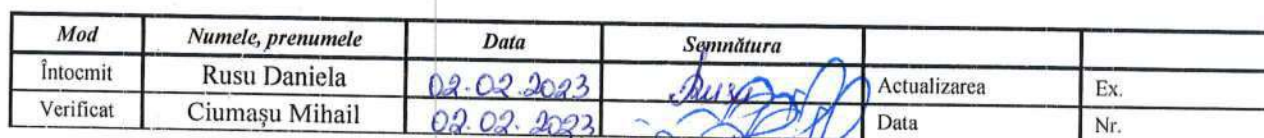 Mod Numele, prenumele Data Semnătura
Întocmit Rusu Daniela 02.02.2023 Rusu Actualizarea Ex.
Verificat Ciumașu Mihail 02.02.2023 Data Nr.